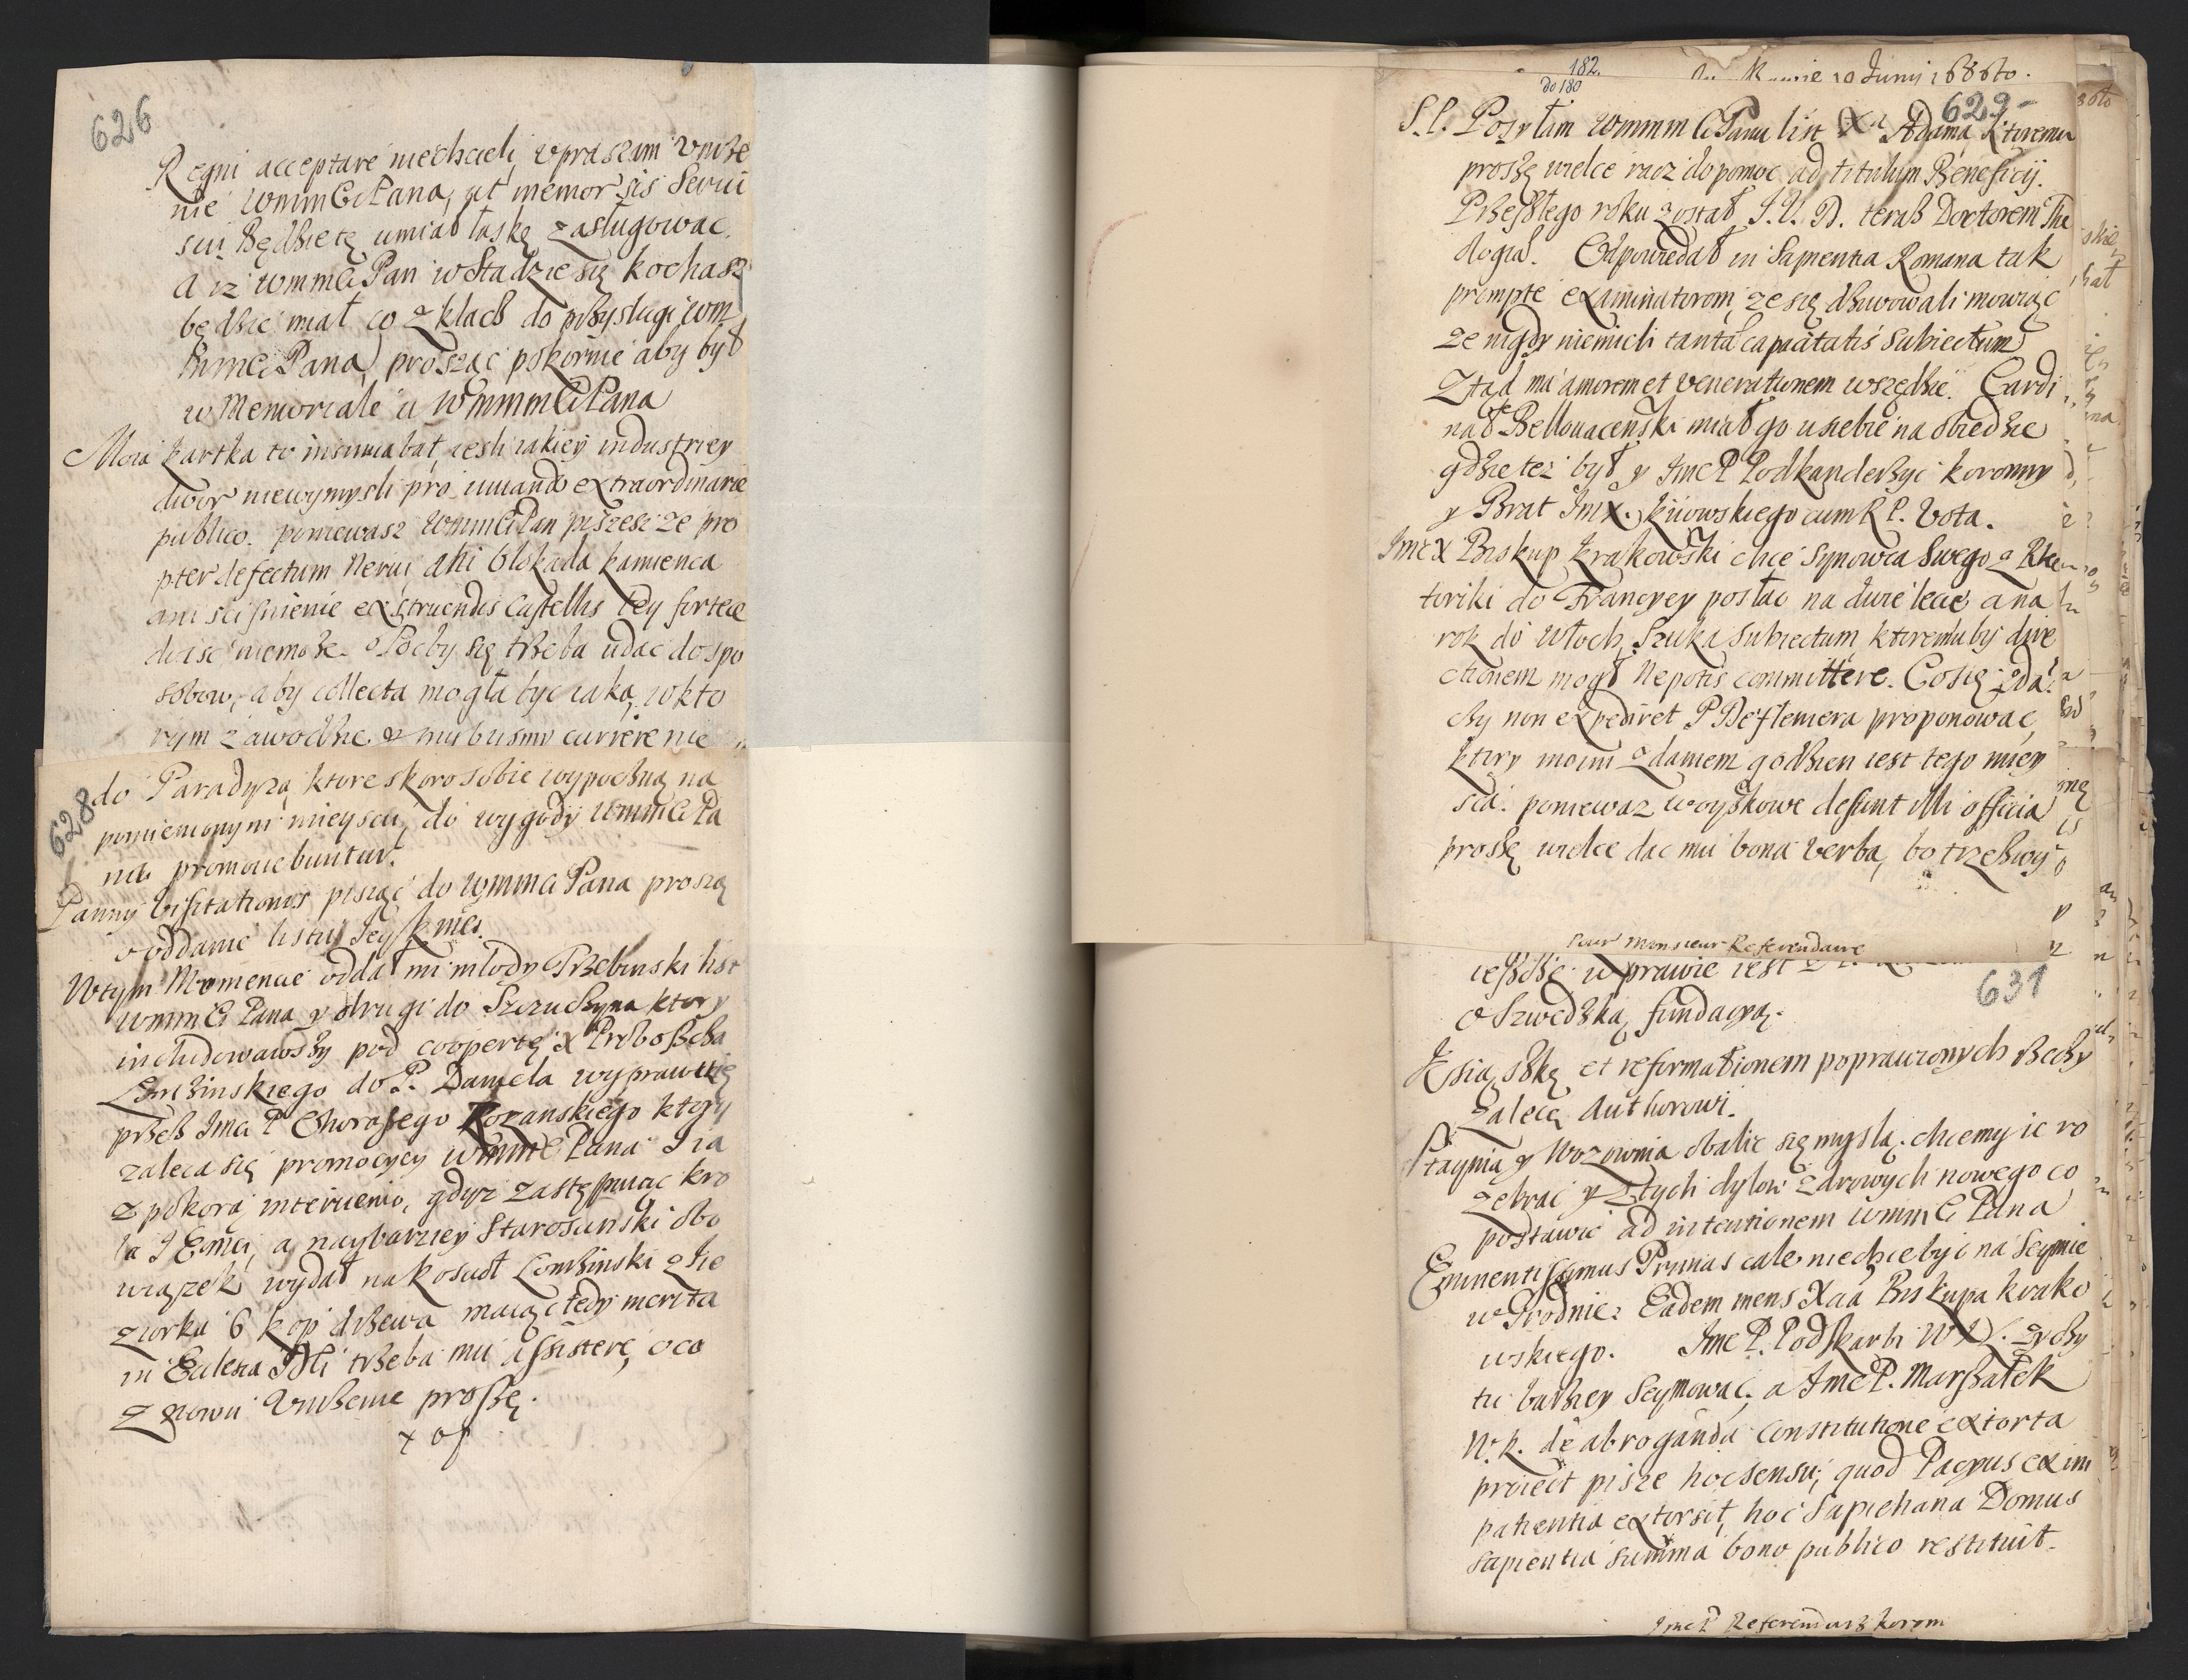 626
Regni acceptare niechcieli, upraszam uniże
nie WmmMCi Pana, ut memor sis Servi
sui. Będzie tę umiał łaskę zasługować.
A iz WmmMCi Pan w Stadzie się kochasz
będzie miał co z klacz do przysługi Wm
MmCi Pana, prosząc pokornie aby był
w Memoriale u WmmmCi Pana
Moia kartka to insinuabat, iesli iakiey industriey
dwor niewymysli pro iuuando extraordinarie
publico. poniewasz WmmCi Pan piszesz ze pro
pter defectum Nerui ani blokada Kamienca
ani scisnienie exstruendis Castellis tey fortece
doisc niemoże. Toby się trzeba udac do spo
sobow, aby collecta mogła byc iaka, w kto
rym zawodzie y mybysmy currere nie
628
do Paradyza, ktore skoro sobie wypoczną na
pomienionym mieyscu, do wygody WmmCi Pa
na promouebuntur.
Panny Visitationis pisząc do WmmCi Pana proszą
o oddanie listu Jey K Mci.
W tym Momencie oddał mi młody Trzebinski list
WmmCi Pana y drugi do Szczuczyna ktory
includowawszy pod coopertę X Proboszcza
Łomżinskiego do P. Daniela wyprawuię
przez Jmci P Chorążego Rozanskiego ktory
zaleca się promocyey WmmCi Pana J ia
z pokorą interuenio, gdyz zastępuiąc kro
la JEmci, a naybarziey Starosinski obo
wiązek, wydał na kosciół Łomżinski z Je
ziorka 6 kop drzewa maiąc tedy merita
in Ecclesia Dei trzeba mu assistere, o co
znowu Uniżenie proszę.
182.
do 180
10 Junij 1686to.
629
S.P. Posyłam WmmmCi Panu list Xa Adama, ktoremu
proszę wielce racz dopomoc ad titulum Beneficij.
Przeszłego roku został J.U.D. teraz Doctorem The
ologiae. Odpowiedał in Sapientia Romana tak
prompte examinatorom, ze się dziwowali mowiąc
ze nigdy niemieli tanta capacitatis subiectum
Ztąd ma amorem et venerationem wszędzie. Cardi
nał Bellouacenski miał go u siebie na obiedzie
gdzie tez był y Jmc P Podkanclerzyc koronny
y Brat JmX. Kijowskiego cum R P. Vota.
JmcX Biskup Krakowski chce Synowca Swego z Rhe
toriki do Francyey posłac na dwie lecie a na
rok do Włoch, Szuka Subiectum, ktoremuby dire
ctionem mogł Nepotis committere. Cosię zda
czy non expediret P Desflemera proponowac,
ktory moim zdaniem godzien iest tego miey
sca. poniewaz woyskowe desunt illi officia
proszę wielce dac mu bona verba, bo trzezwy
Pour Monsieur Referendaire
631
o Szwedzką fundacyą.
Książkę et reformationem poprawionych rzeczy
zalecę Authorowi.
Staynia y Wozownia obalic się myslą. chcemy ie ro
zebrac y z tych dylow zdrowych nowego co
postawic ad intentionem WmmCi Pana
Eminentissimus Primas cale niechce byc na Seymie
w Grodnie: Eadem mens Xaa Biskupa Krako
wskiego. Jmc P. Podskarbi WX. zyczy
tu barziey Seymowac. a JmcP. Marszałek
W.K. de abroganda Constitutione extorta
proiect pisze hoc sensu, quod Pacyus ex im
patientia extorsit, hoc Sapiehana Domus
sapientia summa bono publico restituit.
JmcP Referendarz koronn